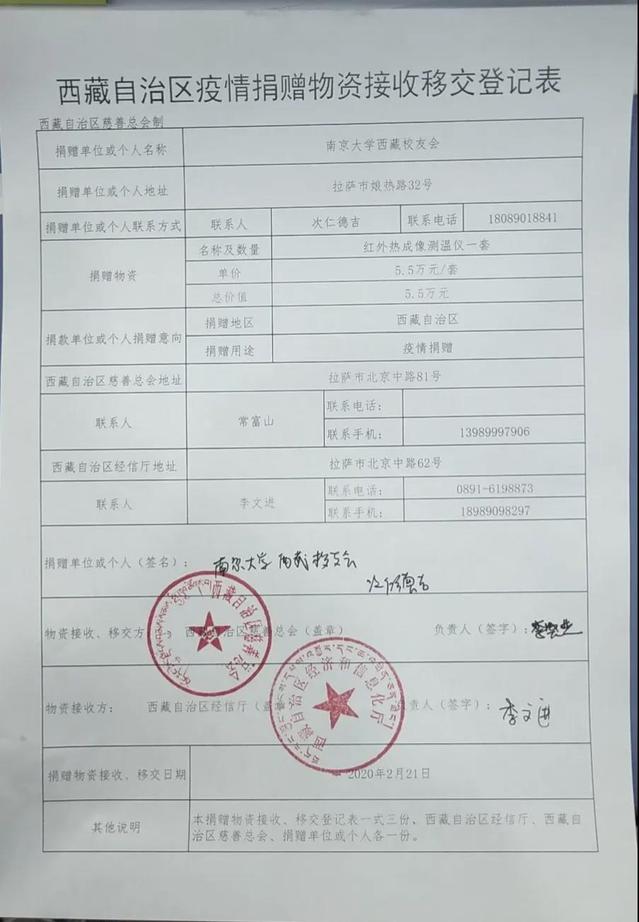 西藏自治区疫情捐赠物资接收移交登记表
西藏自治区慈善总会制
捐赠单位或个人名称 南京大学西藏校友会
捐赠单位或个人地址 拉萨市娘热路32号
捐赠单位或个人联系方式 联系人 次仁德吉 联系电话 18089018841
捐赠物资 名称及数量 红外热成像测温仪一套
单价 5.5万元/套
总价值 5.5万元
捐款单位或个人捐赠意向 捐赠地区 西藏自治区
捐赠用途 疫情捐赠
西藏自治区慈善总会地址 拉萨市北京中路81号
联系人 常富山 联系电话：
联系手机： 13989997906
西藏自治区经信厅地址 拉萨市北京中路62号
联系人 李文进 联系电话： 0891-6198873
联系手机： 18989098297
捐赠单位或个人（签名）： 南京大学西藏校友会
次仁德吉
物资接收、移交方： 西藏自治区慈善总会（盖章） 负责人（签字）：
物资接收方： 西藏自治区经信厅（盖 负责人（签字）： 李文进
西藏自治区慈善总会
西藏自治区经济和信息化厅
捐赠物资接收、移交日期 2020年2月21日
其他说明 本捐赠物资接收、移交登记表一式三份，西藏自治区经信厅、西藏自
治区慈善总会、捐赠单位或个人各一份。